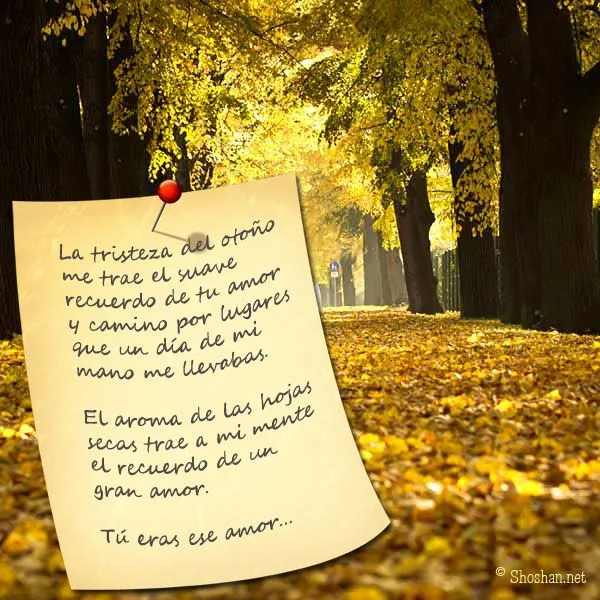 La tristeza del otoño
me trae el suave
recuerdo de tu amor
y camino por lugares
que un día de mi
mano me llevabas.
El aroma de las hojas
secas trae a mi mente
el recuerdo de un
gran amor.
Tú eras ese amor...
© Shoshan.net